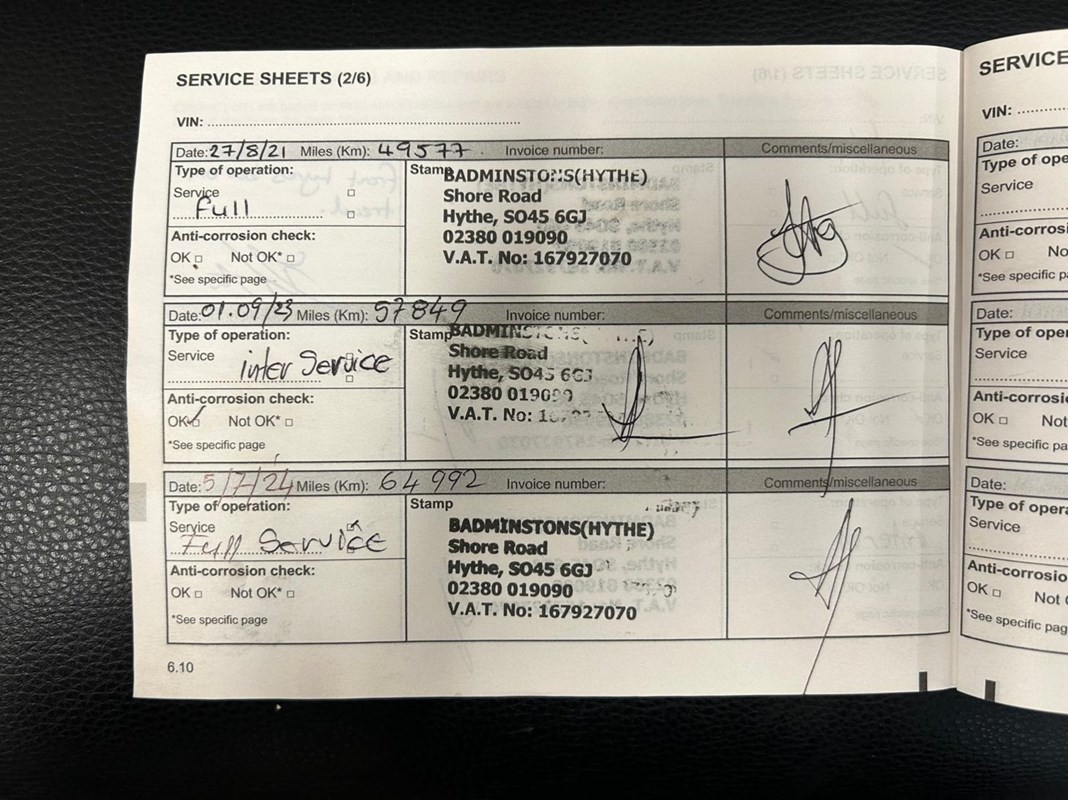 SERVICE SHEETS (2/6)
VIN:
Date: 27/8/21 Miles (Km): 49577 Invoice number: Comments/miscellaneous
Type of operation:
Service
Full
Anti-corrosion check:
OK Not OK*
*See specific page
Stamp
BADMINSTONS(HYTHE)
Shore Road
Hythe, SO45 6GJ
02380 019090
V.A.T. No: 167927070
Date: 01.09/23 Miles (Km): 57849 Invoice number: Comments/miscellaneous
Type of operation:
Service
inter Service
Anti-corrosion check:
OK Not OK*
*See specific page
Stamp
BADMINSTONS
Shore Road
Hythe, SO45 6GJ
02380 019090
V.A.T. No:
Date: 5/7/24 Miles (Km): 64992 Invoice number: Comments/miscellaneous
Type of operation:
Service
Full Service
Anti-corrosion check:
OK Not OK*
*See specific page
Stamp
BADMINSTONS(HYTHE)
Shore Road
Hythe, SO45 6GJ
02380 019090
V.A.T. No: 167927070
6.10
SERVICE
VIN:
Date:
Type of
Service
OK
*See specific
Date:
Type of
Service
OK Not
*See specific
Date:
Type of
Service
OK Not
*See specific